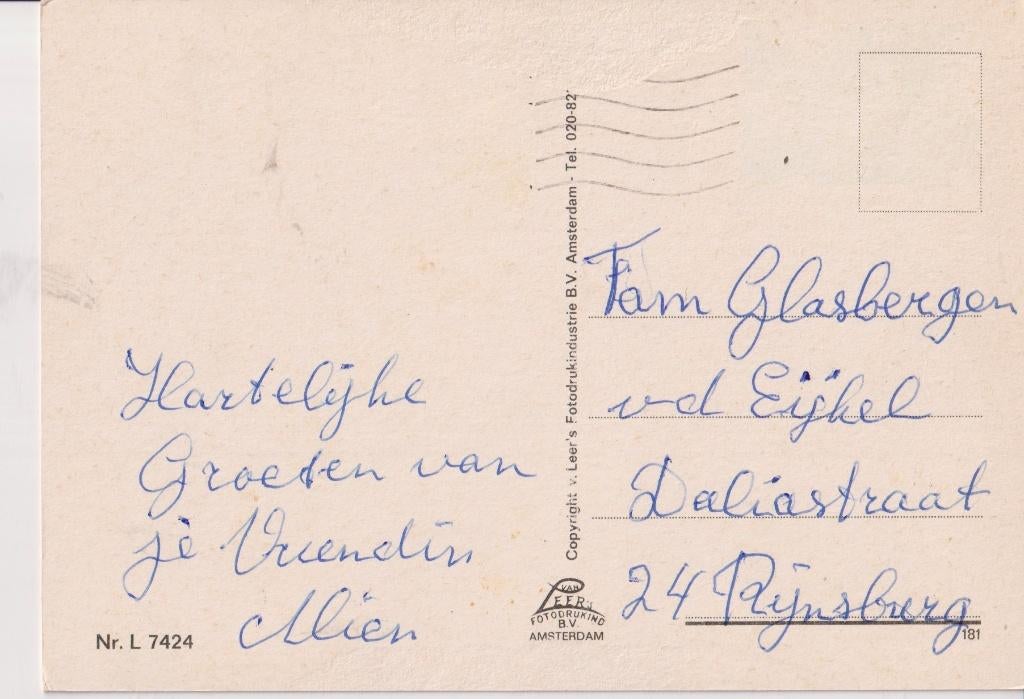 Hartelijke
Groeten van
je Vriendin
Mien
Nr. L 7424
Copyright v. Leer's Fotodrukindustrie B.V. Amsterdam - Tel. 020-82
VAN
LEER'S
FOTODRUKIND
B.V.
AMSTERDAM
Fam Glasbergen
vd Eijkel
Daliastraat
24 Rijnsburg
181